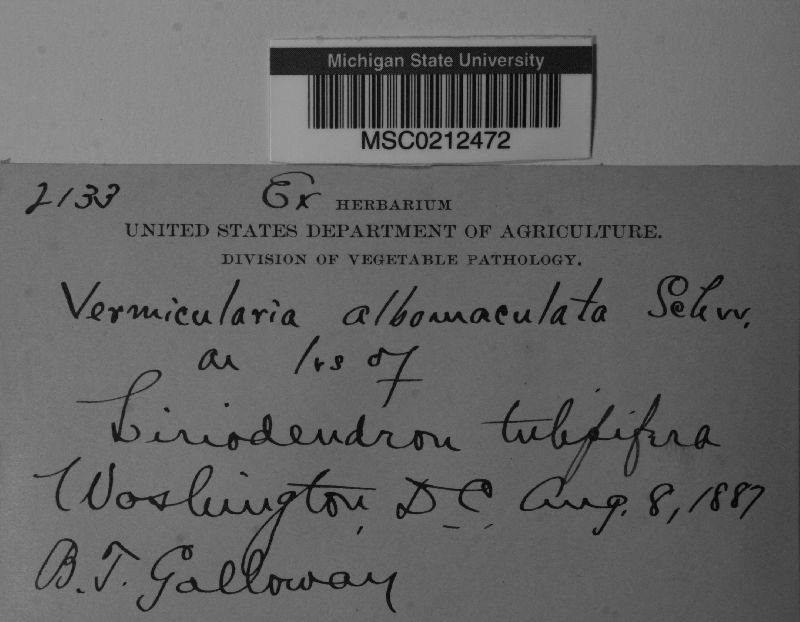 Michigan State University
MSC0212472
2133 Ex HERBARIUM
UNITED STATES DEPARTMENT OF AGRICULTURE.
DIVISION OF VEGETABLE PATHOLOGY.
Vermicularia albomaculata Schw.
on lvs of
Liriodendron tulipifera
Washington, D.C. Aug. 8, 1887
B. T. Galloway